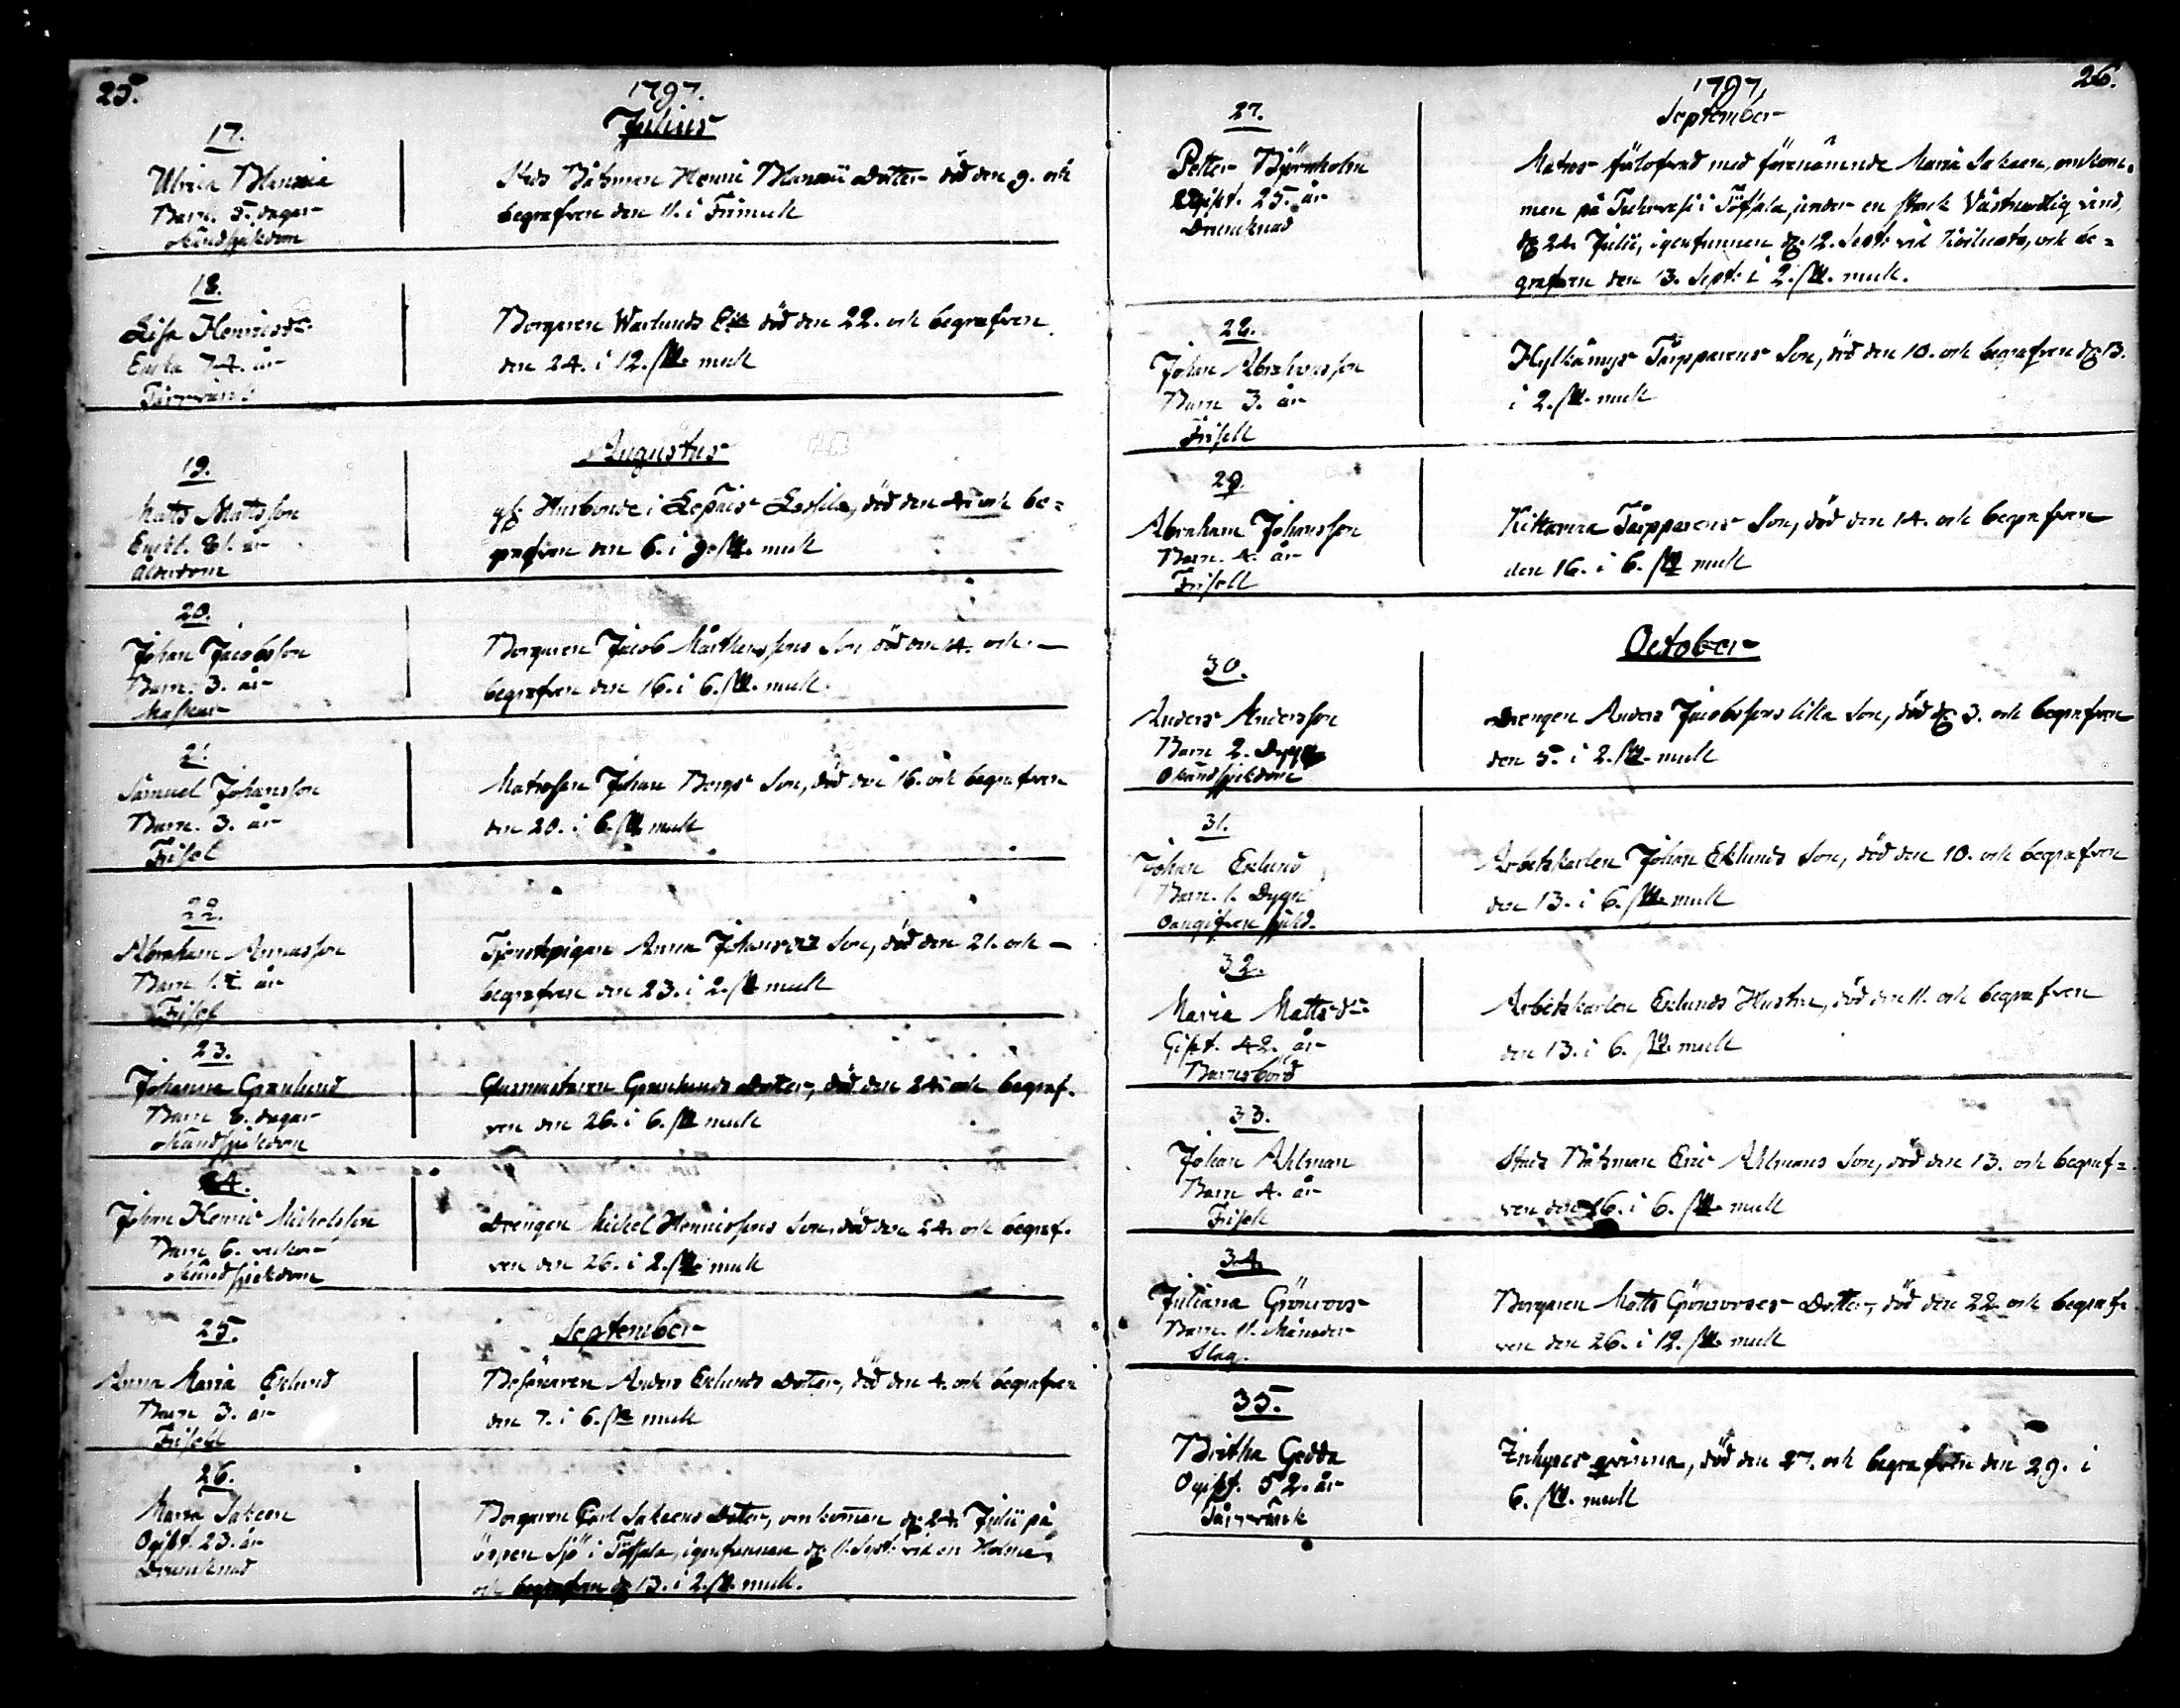 25.
1797.
Julius
17.
Ulrica
Barn. 5. dagar
Båtsman Henric Dotter död den 9. och
begrafven den 11. i mull
18.
Lisa Henricsdr.
Enka 74. år
Borgaren Warlunds Enka död den 22. och begrafven
den 24. i 12. sk. mull
Augustus
19.
Matts Mattsson
Enkl. 81. år
Ålderdom
Husbonde i död den 4. och be=
grafven den 6. i 9. sk. mull
20.
Johan Jacobsson
Barn. 3. år
Borgaren Jacob Mårthenssons Son död den 14. och
begrafven den 16. i 6. sk. mull.
21.
Samuel Johansson
Barn. 3. år
Frisel
Matrosen Johan Bergs Son, död den 16. och begrafven
den 20. i 6. sk. mull
22.
Abraham Annasson
Barn år
Frisel
Tjenstepigan Anna Johansdr. Son, död den 21. och
begrafven den 23. i 2. sk. mull
23.
Johanna Granlund
Barn 8. dagar
Glasmästaren Granlunds Dotter, död den 24. och begraf.
ven den 26. i 6. sk. mull
24.
Johan Henric Michelsson
Barn 6. veckor
Drengen Michel Henricssons Son, död den 24. och begraf.
ven den 26. i 2. sk. mull
25.
September
Anna Maria Eklund
Barn 3. år
Frisell
Besökaren Anders Eklunds Dotter, död den 4. och begrafven
den 7. i 6. sk. mull
26.
Maria Sakeen
Ogift. 23. år
Drunknad
Borgaren Carl Sakeens Dotter, omkommen d. 24. Julii på
öppen Sjö i Töfsala, igenfunnen d. 11. Sept. vid en Holme,
och begrafven d. 13. i 2. sk. mull.
26.
1797.
September
27.
Petter Björkholm
Ogift. 25. år
Drunknad
Matros fölofvad med förenämnde Maria Sakeen, omkom=
men på i Töfsala, under en stark Västnordlig vind,
d. 24. Julii, igenfunnen d. 12. Sept. vid och be=
grafven den 13. Sept. i 2. sk. mull.
28.
Johan Abrahamsson
Barn 3. år
Frisell
Son, död den 10. och begrafven d. 13.
i 2. sk. mull
29.
Abraham Johansson
Barn. 4. år
Frisell
Son, död den 14. och begrafven
den 16. i 6. sk. mull
October
30.
Anders Andersson
Barn 2. Dygn
Okänd sjukdom
Drengen Anders Jacobssons lilla Son, död d. 3. och begrafven
den 5. i 2. sk. mull
31.
Johan Eklund
Barn. 1. Dygn
Oangifven sjukd.
Arbetskarlen Johan Eklunds Son, död den 10. och begrafven
den 13. i 6. sk. mull
32.
Maria Mattsdr.
Gift. 42. år
Barnsbörd
Arbetskarlen Eklunds Hustru, död den 11. och begrafven
den 13. i 6. sk. mull
33.
Johan Ahlman
Barn 4. år
Frisel
Stads Båtsman Eric Ahlmans Son, död den 13. och begraf=
ven den 16. i 6. sk. mull
34.
Juliana Grönroos
Barn. 11. Månader
Slag.
Borgaren Matts Grönrooses Dotter, död den 22. och begraf=
ven den 26. i 12. sk. mull
35.
Britha Gedda
Ogift. 52. år
qvinna, död den 27. och begrafven den 29. i
6. sk. mull